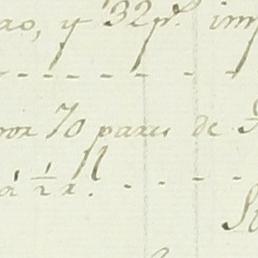 ao, y 32 p.s imp
por 70 pares de
á ½ rl.